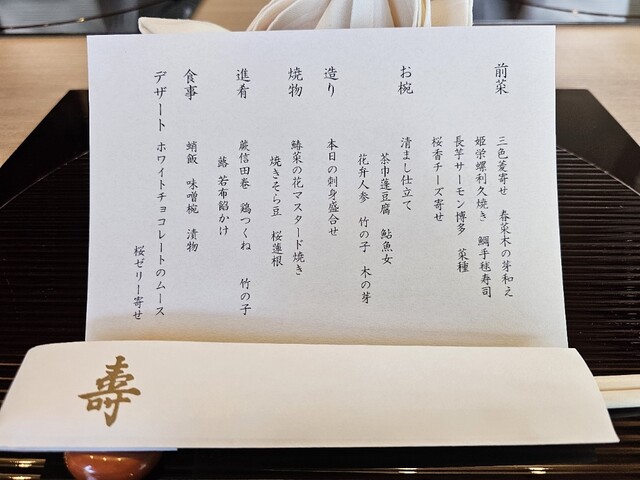 前菜
三色菱寄せ　春菜木の芽和え
姫栄螺利久焼き　鯛手毬寿司
長芋サーモン博多　菜種
桜香チーズ寄せ
お椀
清まし仕立て
茶巾蓬豆腐　鮎魚女
花弁人参　竹の子　木の芽
造り
本日の刺身盛合せ
焼物
鰆菜の花マスタード焼き
焼きそら豆　桜蓮根
進肴
蕨信田巻　鶏つくね　竹の子
蕗　若布餡かけ
食事
蛸飯　味噌椀　漬物
デザート
ホワイトチョコレートのムース
桜ゼリー寄せ
寿